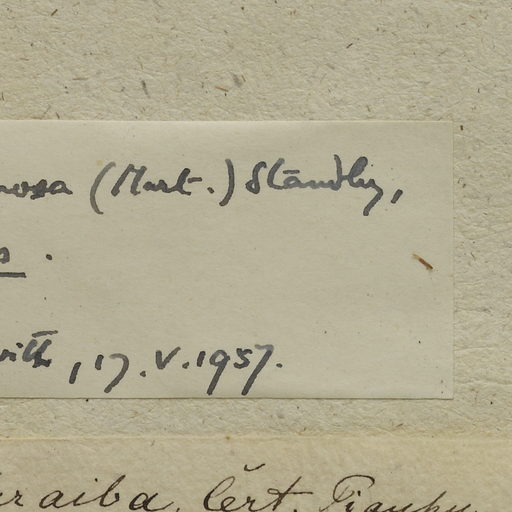 nosa (Mart.) Standley,
s.
with, 17.V.1957.
araiba. Cert. Piauhy